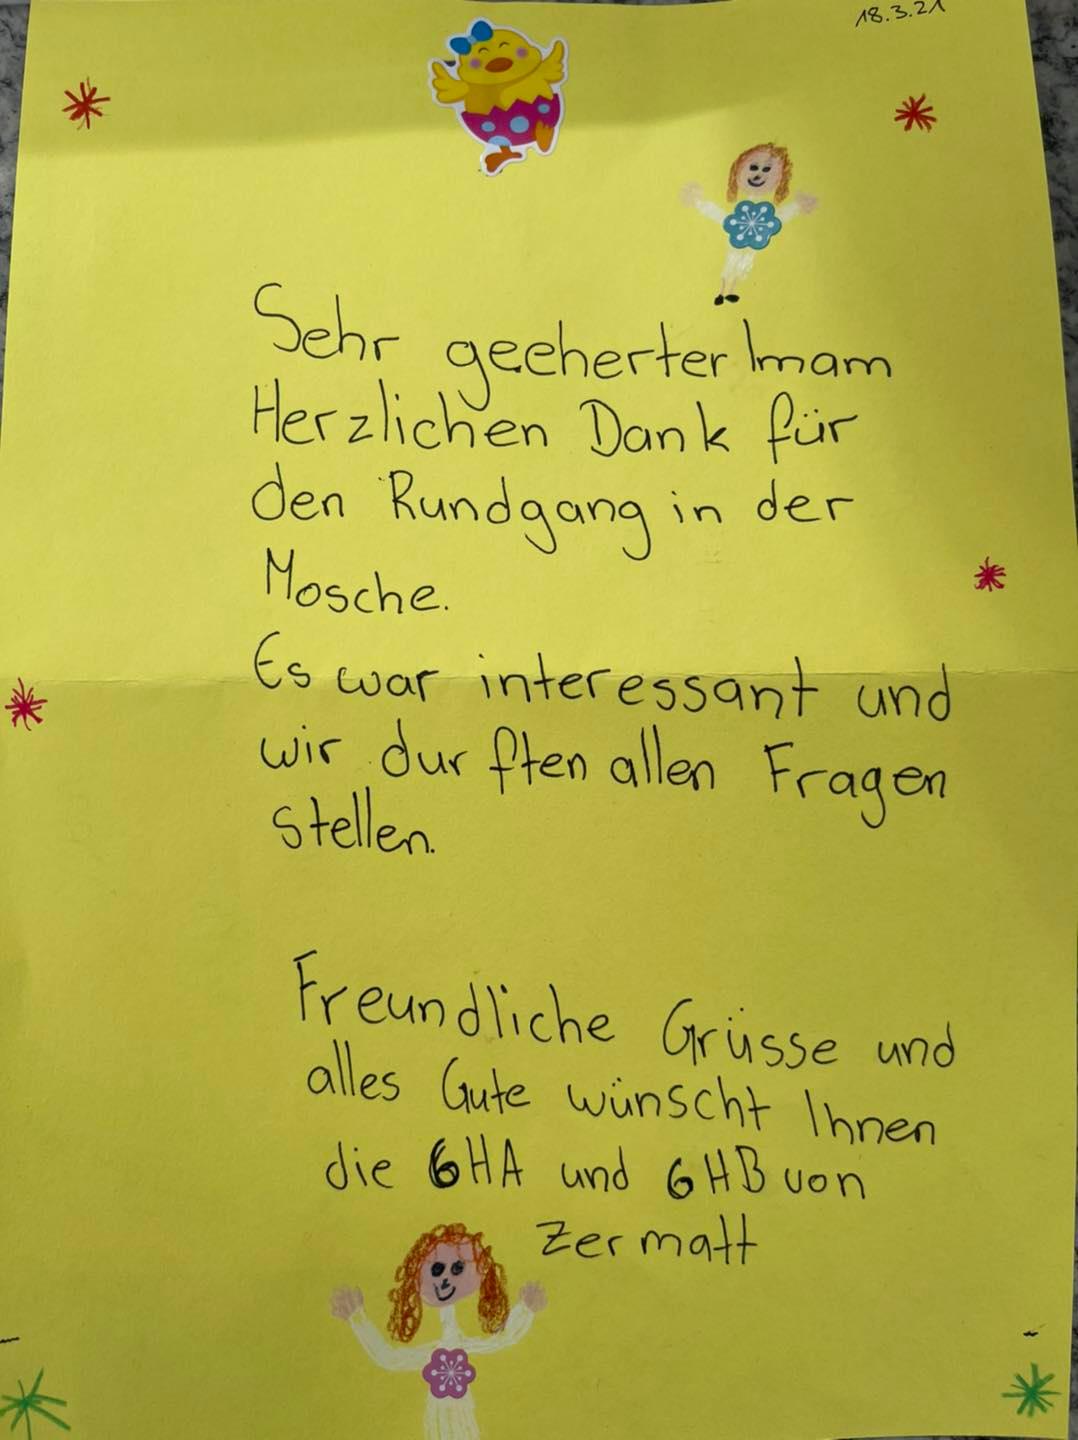 18.3.21
Sehr geeherter Imam
Herzlichen Dank für
den Rundgang in der
Mosche.
Es war interessant und
wir durften allen Fragen
stellen.
Freundliche Grüsse und
alles Gute wünscht Ihnen
die 6HA und 6HB von
Zermatt